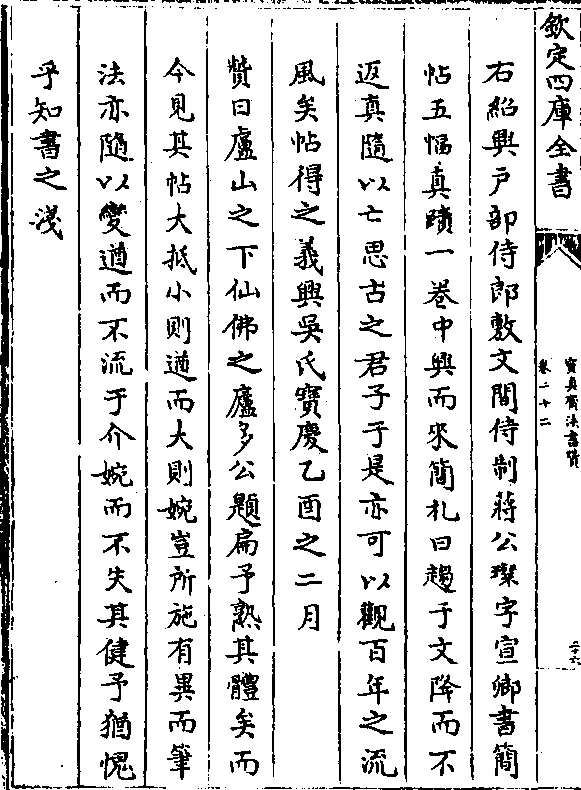 欽定四庫全書
寶真齋法書贊
卷二十二
二十六
右紹興戸部侍郎敷文閣侍制蔣公璨字宣卿書簡
帖五幅真蹟一卷中興而來簡札日趨于文降而不
返真隨以亡思古之君子于是亦可以觀百年之流
風矣帖得之義興吳氏寶慶乙酉之二月
贊曰廬山之下仙佛之廬多公題扁予熟其體矣而
今見其帖大抵小則遒而大則婉豈所施有異而筆
法亦隨以變遒而不流于介婉而不失其健予猶愧
乎知書之淺